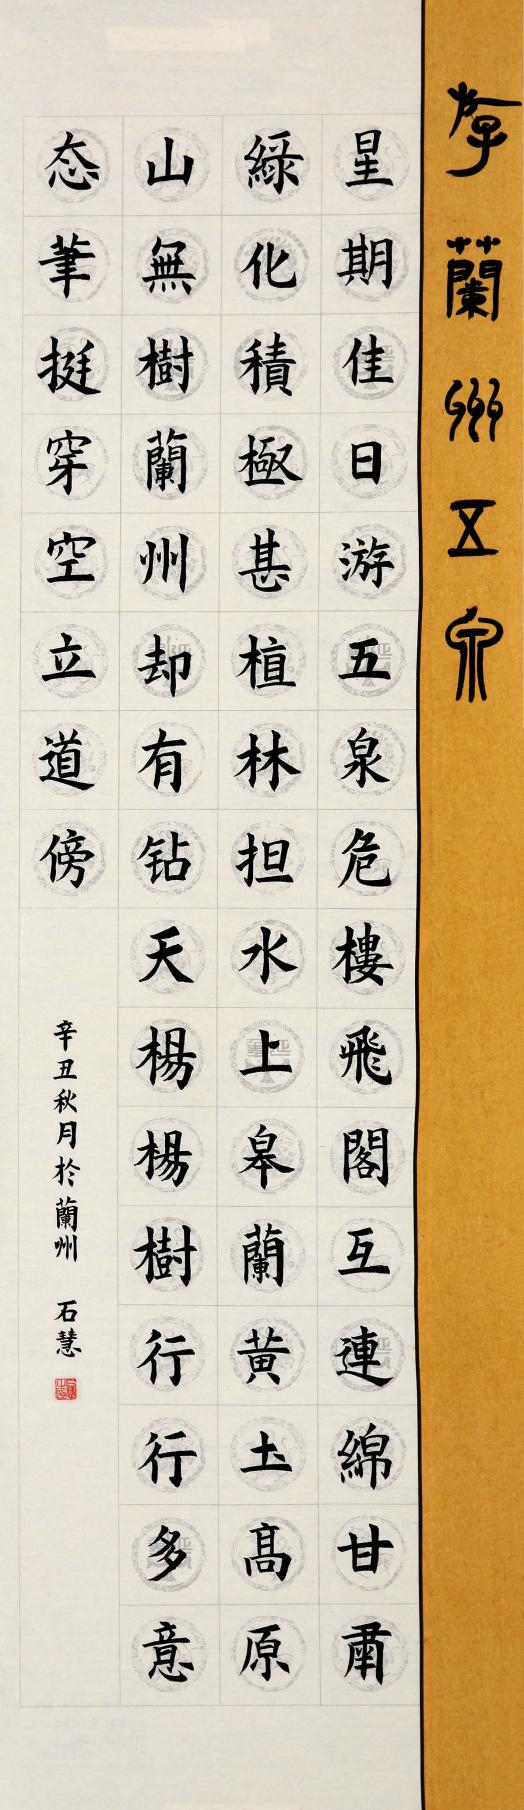 斿蘭州五泉
星期佳日游五泉危樓飛閣互連綿甘肅
綠化積極甚植林担水上皋蘭黄圡髙原
山無樹蘭州却有钻天楊楊樹行行多意
态筆挺穿空立道傍
辛丑秋月於蘭州 石慧